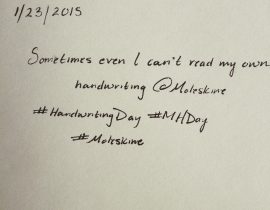 1/23/2015
Sometimes even I can't read my own
handwriting @Moleskine
#HandwritingDay #MHDay
#Moleskine